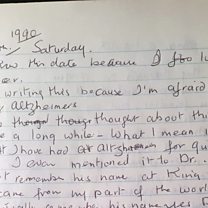 1990
Saturday.
this date because I
er.
writing this because I'm afraid
Alzheimers
thought about this
a long while - What I mean i
I have had Alzheimers for qu
I even mentioned it to Dr. .
t remember his name at King
came from my part of the world